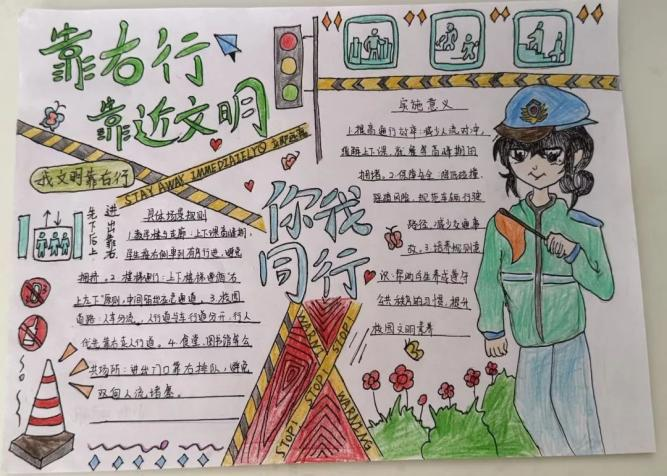 靠右行
靠近文明
STAY AWAY IMMEDIATELY
我文明靠右行
先下后上
进出靠右
你我
同行
具体场景规则
1.教学楼与走廊:上下课高峰期,
学生靠右侧单列有序行进,避免
拥挤。2.楼梯侧:上下楼梯遵循"右
上左下"原则,中间留出应急通道。3.校园
道路:人车分流,人行道与车行道分开,行人
优先靠右走人行道。4.食堂、图书馆等公
共场所:进出门口靠右排队,避免
双向人流堵塞。
实施意义
1.提高通行效率:减少人流对冲,
缓解上下课、就餐等高峰期间
拥堵。2.保障安全:降低碰撞、
踩踏风险,规范车辆行驶
路径,减少交通事
故。3.培养规则意
识:帮助学生养成遵守
公共秩序的习惯,提升
校园文明素养
WARNING STOP!
STOP! STOP! WARNING